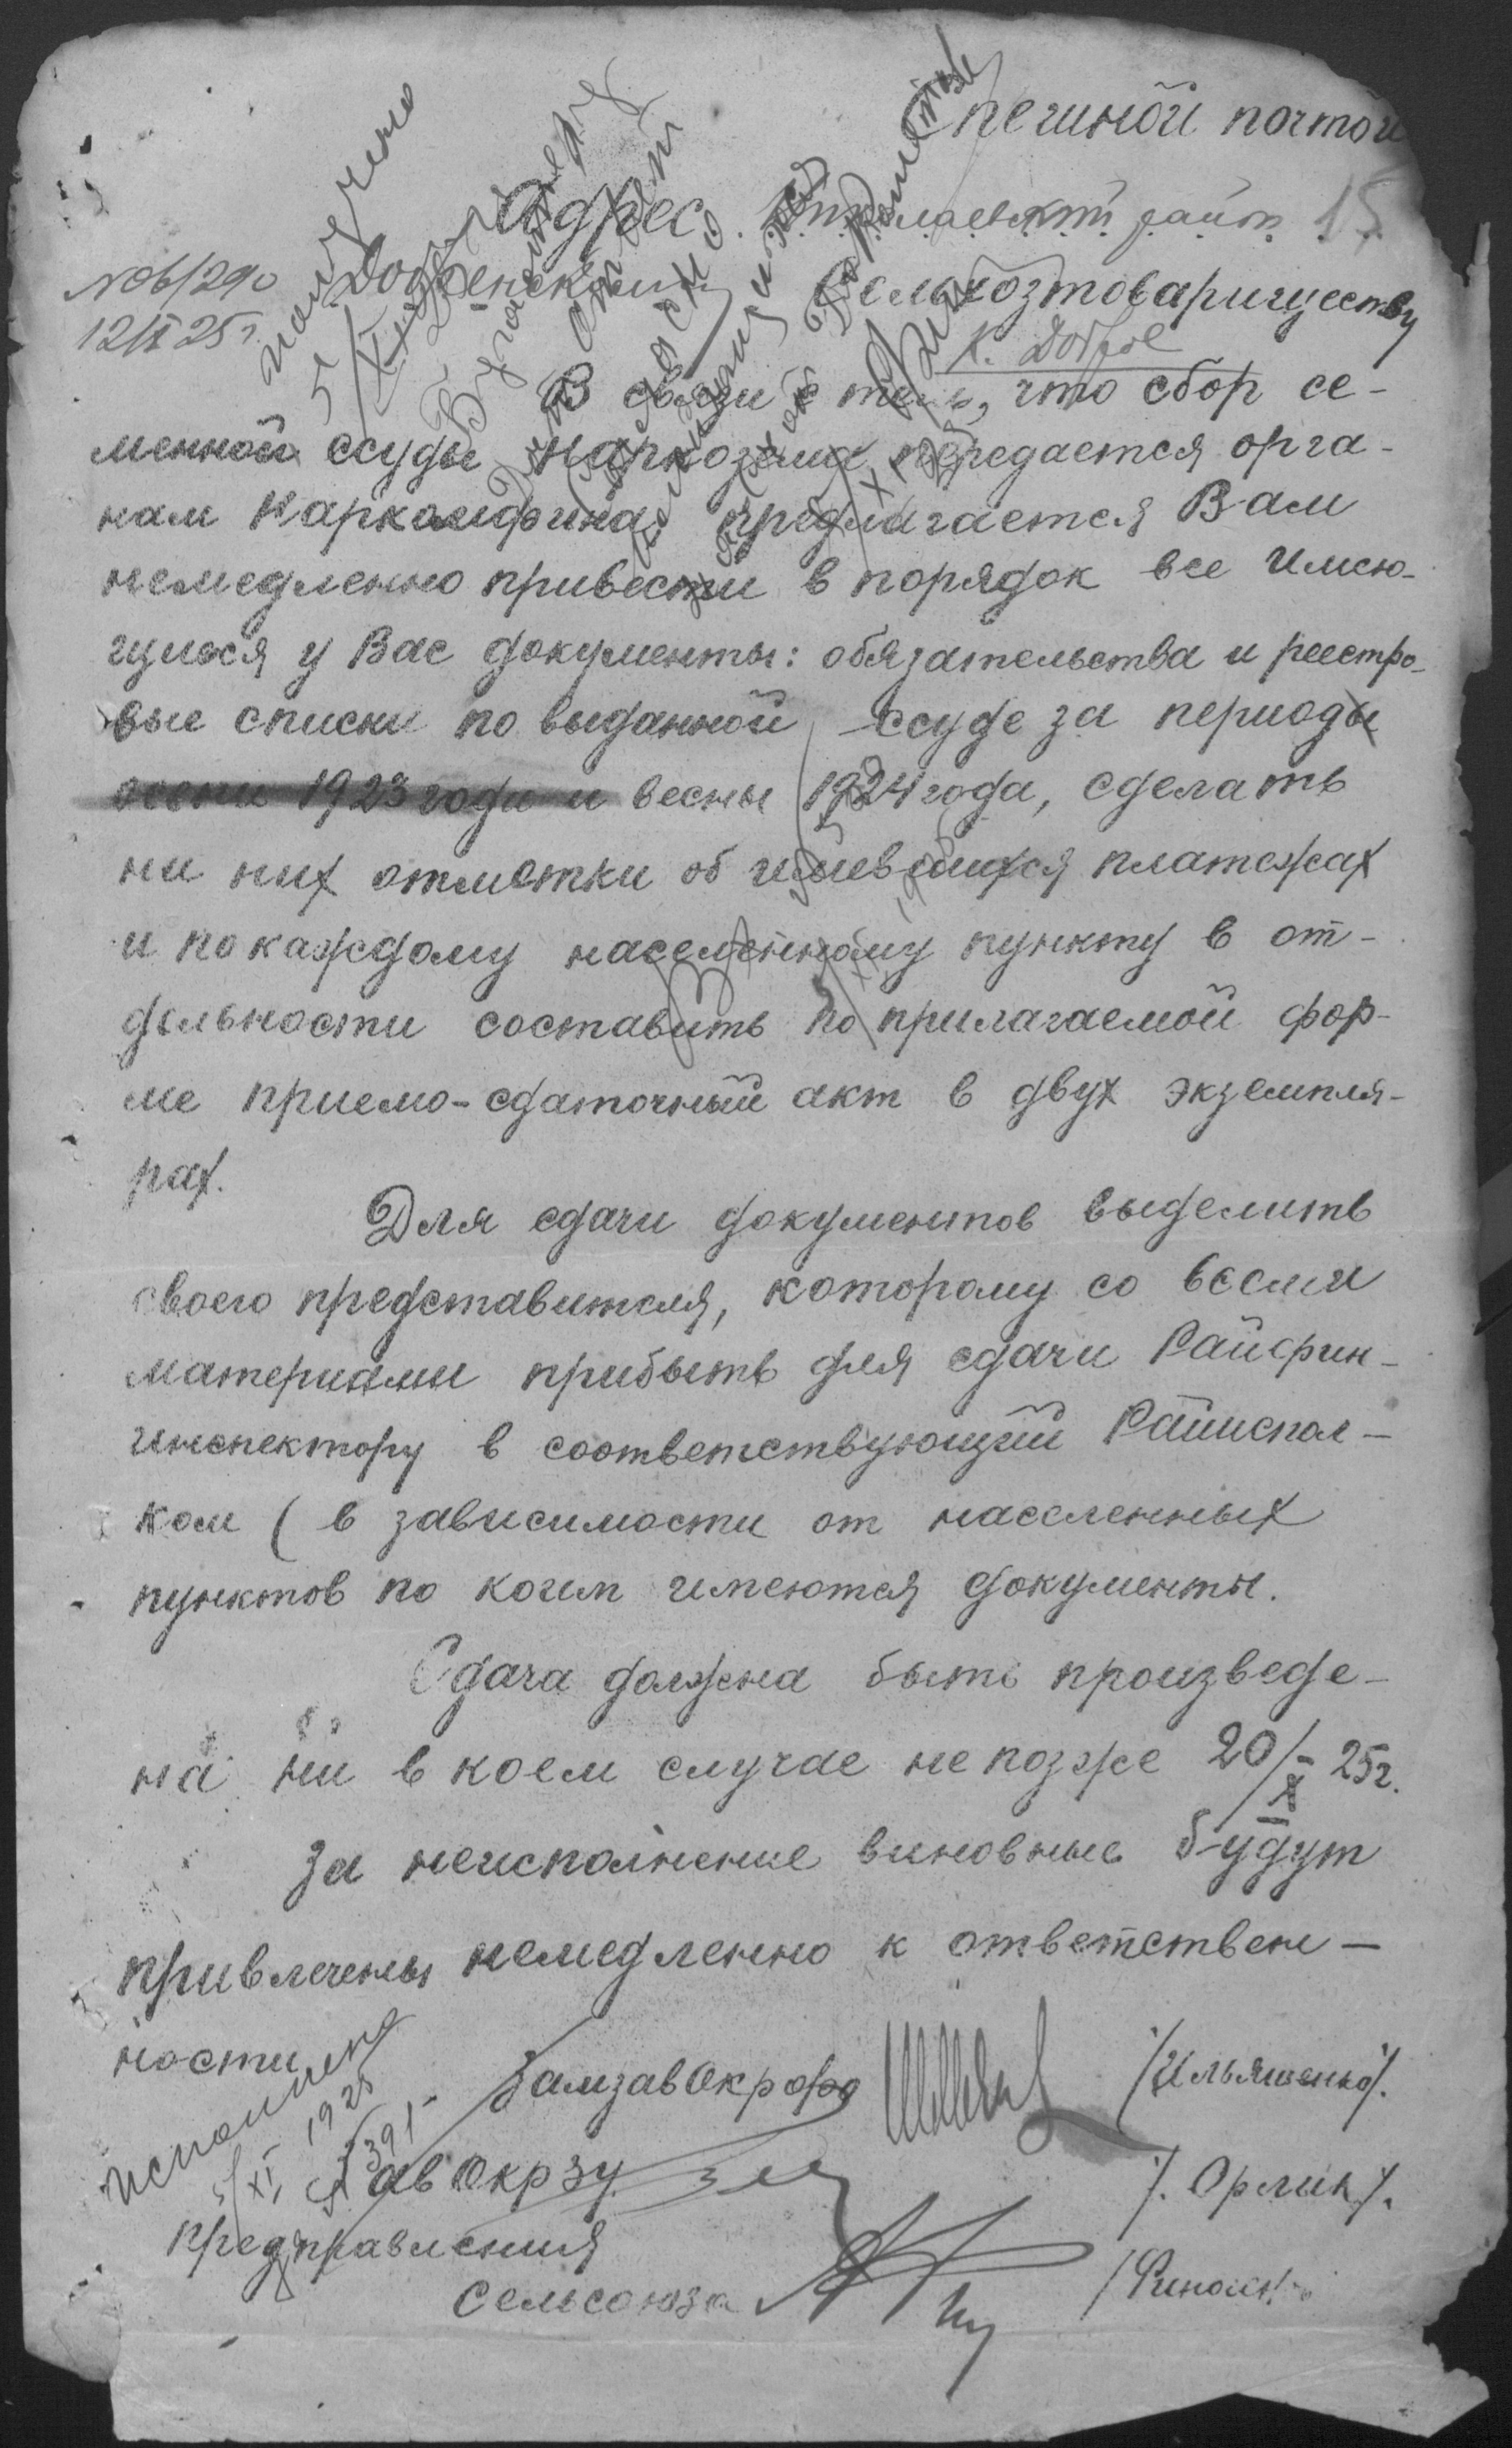 Спешной почтой
Адрес. район 15
№ 06/290 Добренскому Сельхозтовариществу
12/X 25 г. К. Доброе
В связи с тем, что сбор се-
менной ссуды Наркозема передается орга-
нам Наркомфина, предлагается Вам
немедленно привести в порядок все имею-
щиеся у Вас документы: обязательства и реестро-
вые списки по выданной ссуде за период
осени 1923 года и весны 1924 года, сделать
на них отметки об имевшихся платежах
и по каждому населенному пункту в от-
дельности составить по прилагаемой фор-
ме приемо-сдаточный акт в двух экземпля-
рах.
Для сдачи документов выделить
своего представителя, которому со всеми
материалми прибыть для сдачи Райфин-
инспектору в соответствующий Райиспол-
ком ( в зависимости от населенных
пунктов по коим имеются документы.
Сдача должна быть произведе-
на ни в коем случае не позже 20/X- 25г.
За неисполнение виновные будут
привлечены немедленно к ответствен-
ности
ЗамзавОкрфо /Ильяшенко/.
ЗавОкрЗУ /. Орлик /.
Предправления
Сельсоюза
получено
5/XI
исполнено
5/XI 1925
№ 391